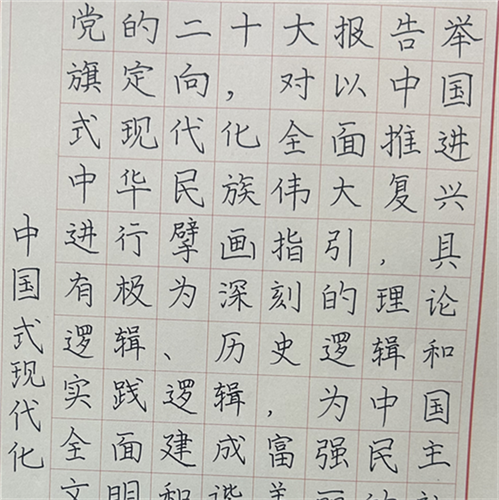 党的二十大报告举
旗定向，对以中国
式现代化全面推进
中华民族伟大复兴
进行擘画指引，具
有极为深刻的理论
逻辑、历史逻辑和
实践逻辑，为中国
全面建成富强民主
文明和谐美丽的
中国式现代化